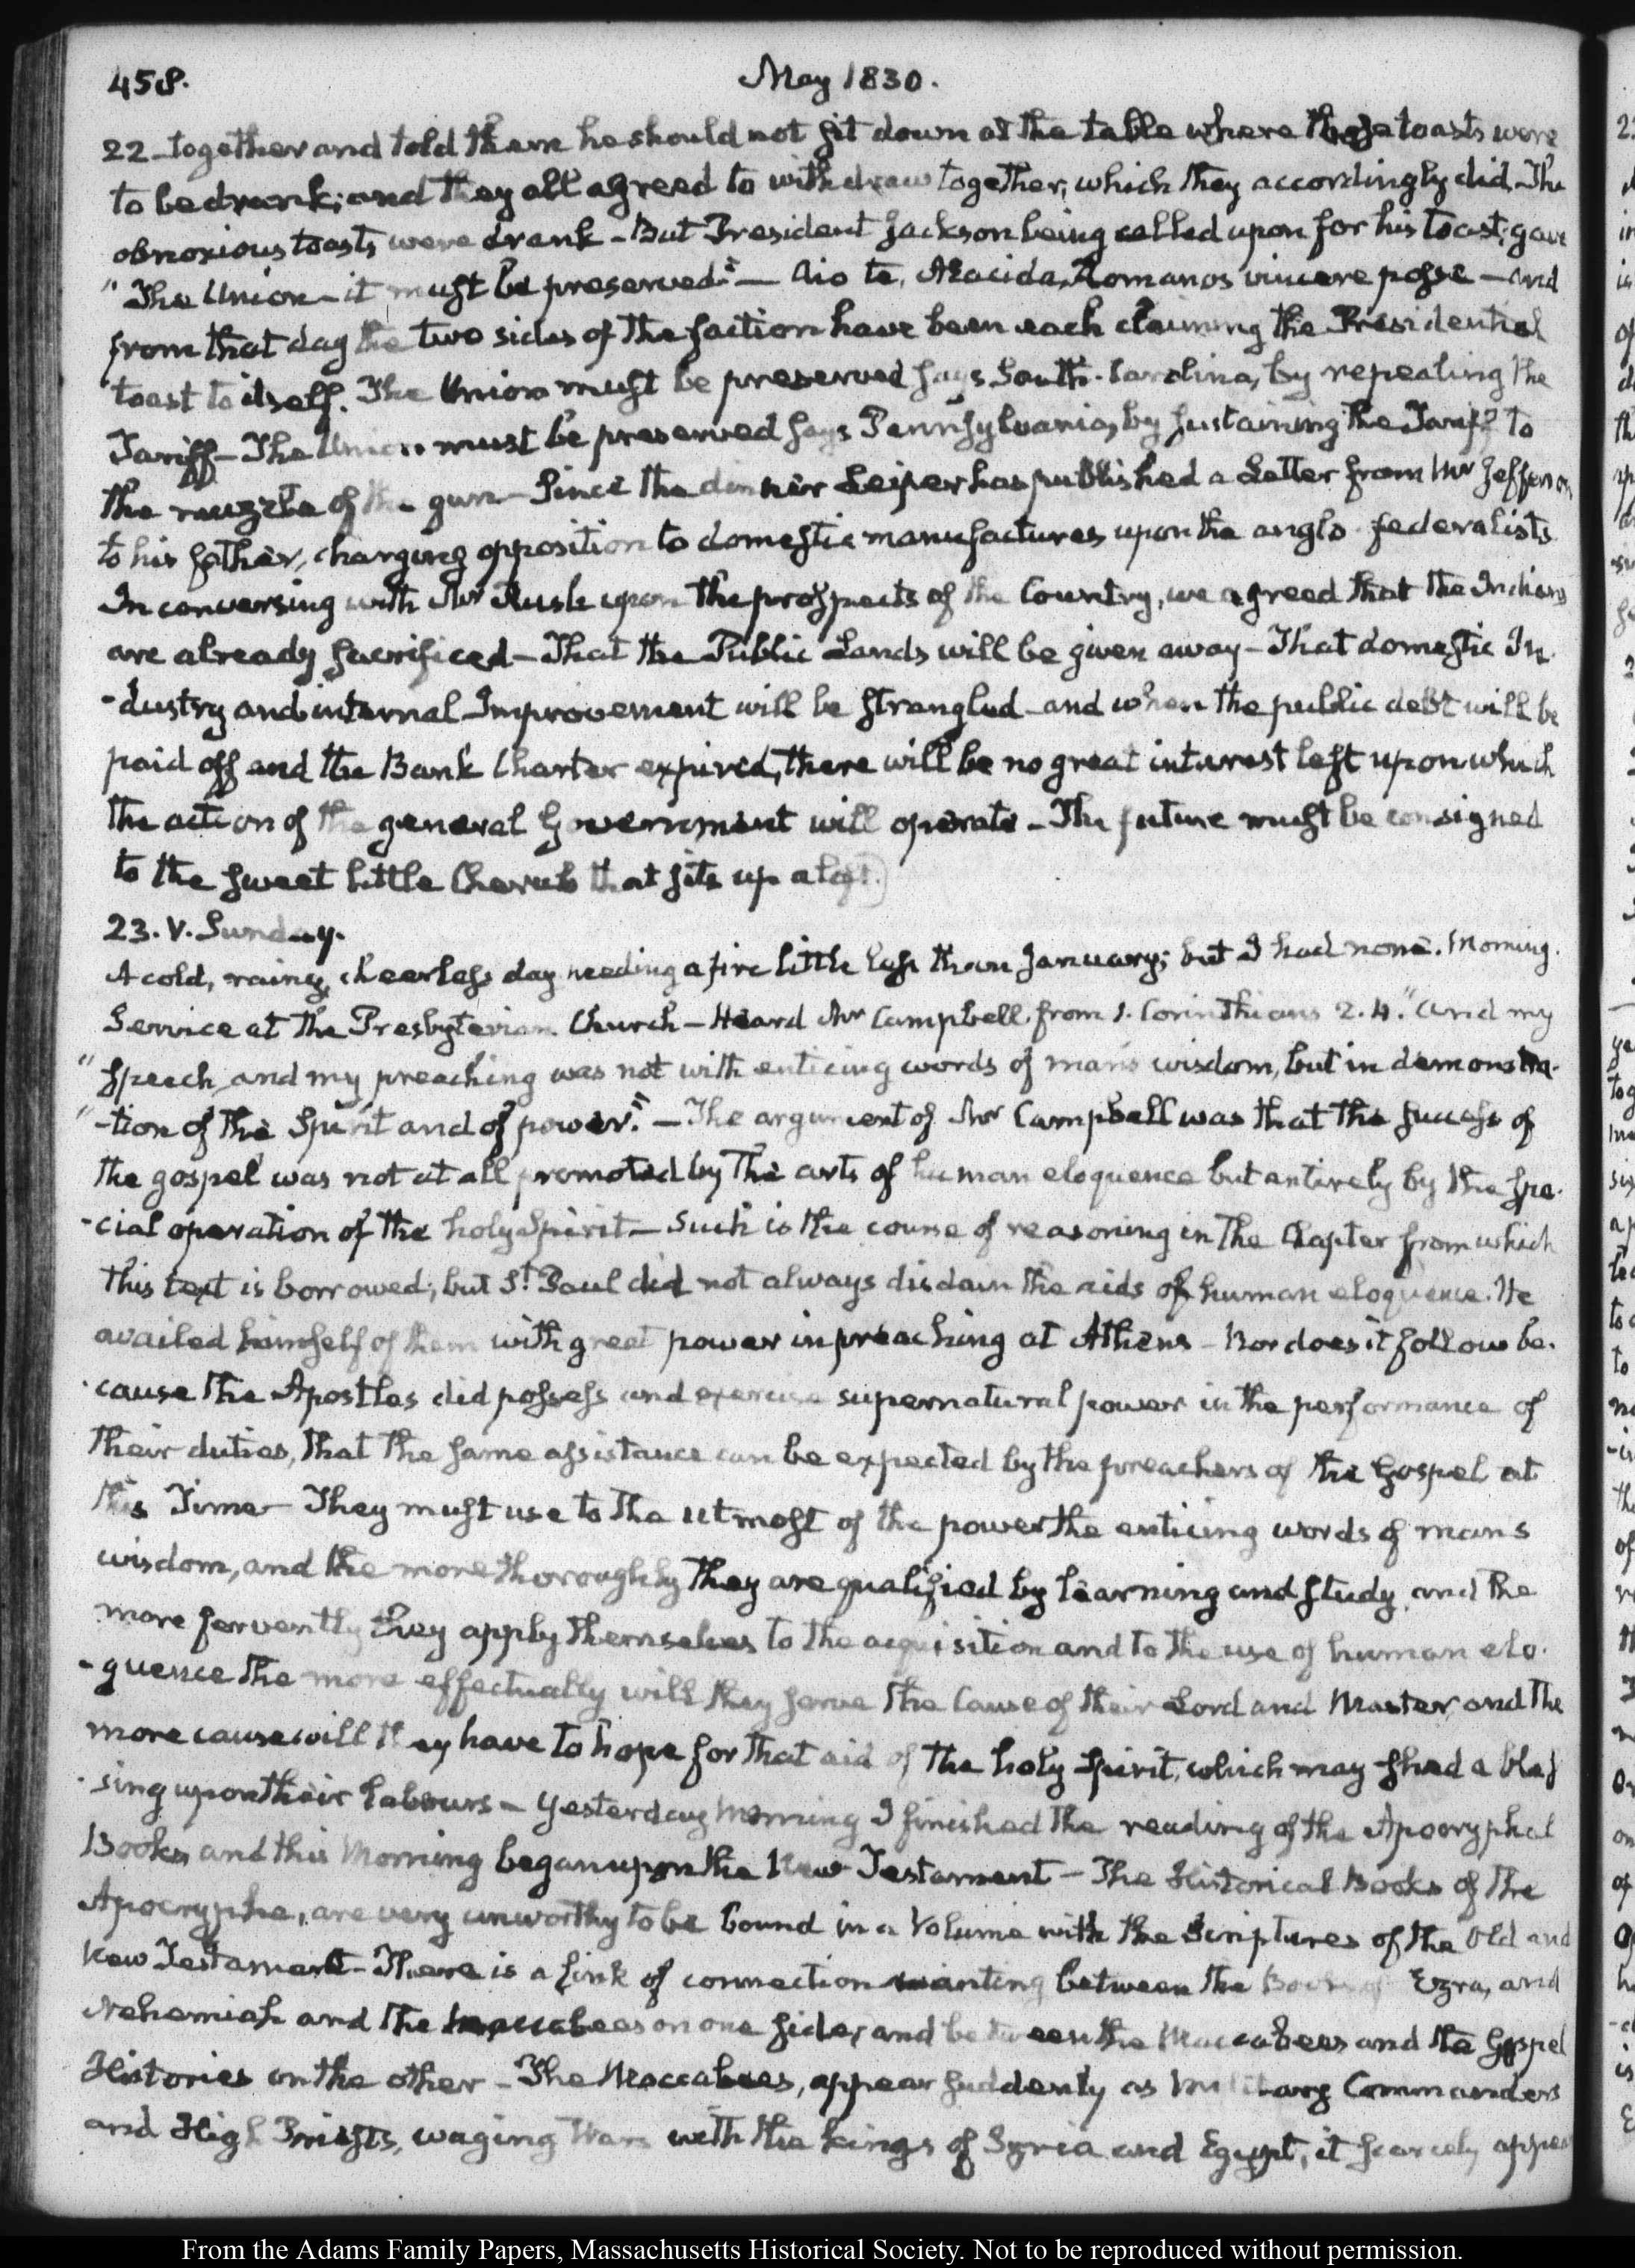 458.
May 1830.
22 together and told them he should not sit down at the table where those toasts were
to be drank; and they all agreed to withdraw together, which they accordingly did. The
obnoxious toasts were drank - But President Jackson being called upon for his toast; gave
"The Union - it must be preserved." - Aio te, Æacida, Romanos vincere posse - and
from that day the two sides of the faction have been each claiming the Presidential
toast to itself. The Union must be preserved says South-Carolina, by repealing the
Tariff - The Union must be preserved says Pennsylvania, by sustaining the Tariff to
the muzzle of the gun - Since the dinner Leiper has published a Letter from Mr Jefferson
to his father, charging opposition to domestic manufactures upon the anglo-federalists
In conversing with Mr Rush upon the prospects of the Country, we agreed that the Indians
are already sacrificed - That the Public Lands will be given away - That domestic In-
-dustry and internal Improvement will be strangled - and when the public debt will be
paid off and the Bank Charter expired, there will be no great interest left upon which
the action of the general Government will operate - The future must be consigned
to the sweet little Cherub that sits up aloft.
23. V. Sunday.
A cold, rainy, cheerless day needing a fire little less than January; but I had none. Morning
Service at the Presbyterian Church - Heard Mr Campbell from 1. Corinthians 2. 4. "And my
"speech and my preaching was not with enticing words of mans wisdom, but in demonstra-
"-tion of the Spirit and of power." - The argument of Mr Campbell was that the success of
the gospel was not at all promoted by the arts of human eloquence but entirely by the spe-
-cial operation of the holy Spirit - Such is the course of reasoning in the Chapter from which
this text is borrowed; but St. Paul did not always disdain the aids of human eloquence. He
availed himself of them with great power in preaching at Athens - Nor does it follow be-
-cause the Apostles did possess and exercise supernatural power in the performance of
their duties, that the same assistance can be expected by the preachers of the Gospel at
this Time - They must use to the utmost of the power the enticing words of mans
wisdom, and the more thoroughly they are qualified by learning and study, and the
more fervently they apply themselves to the acquisition and to the use of human elo-
-quence the more effectually will they serve the Cause of their Lord and Master, and the
more cause will they have to hope for that aid of the holy Spirit, which may shed a bles-
-sing upon their labours - Yesterday Morning I finished the reading of the Apocryphal
Books and this Morning began upon the New Testament - The Historical Books of the
Apocrypha, are very unworthy to be bound in a Volume with the Scriptures of the Old and
New Testament - There is a link of connection wanting between the Books of Ezra, and
Nehemiah and the Maccabees on one side, and between the Maccabees and the Gospel
Histories on the other - The Maccabees, appear suddenly as Military Commanders
and High Priests, waging Wars with the kings of Syria and Egypt, it scarcely appea
From the Adams Family Papers, Massachusetts Historical Society. Not to be reproduced without permission.